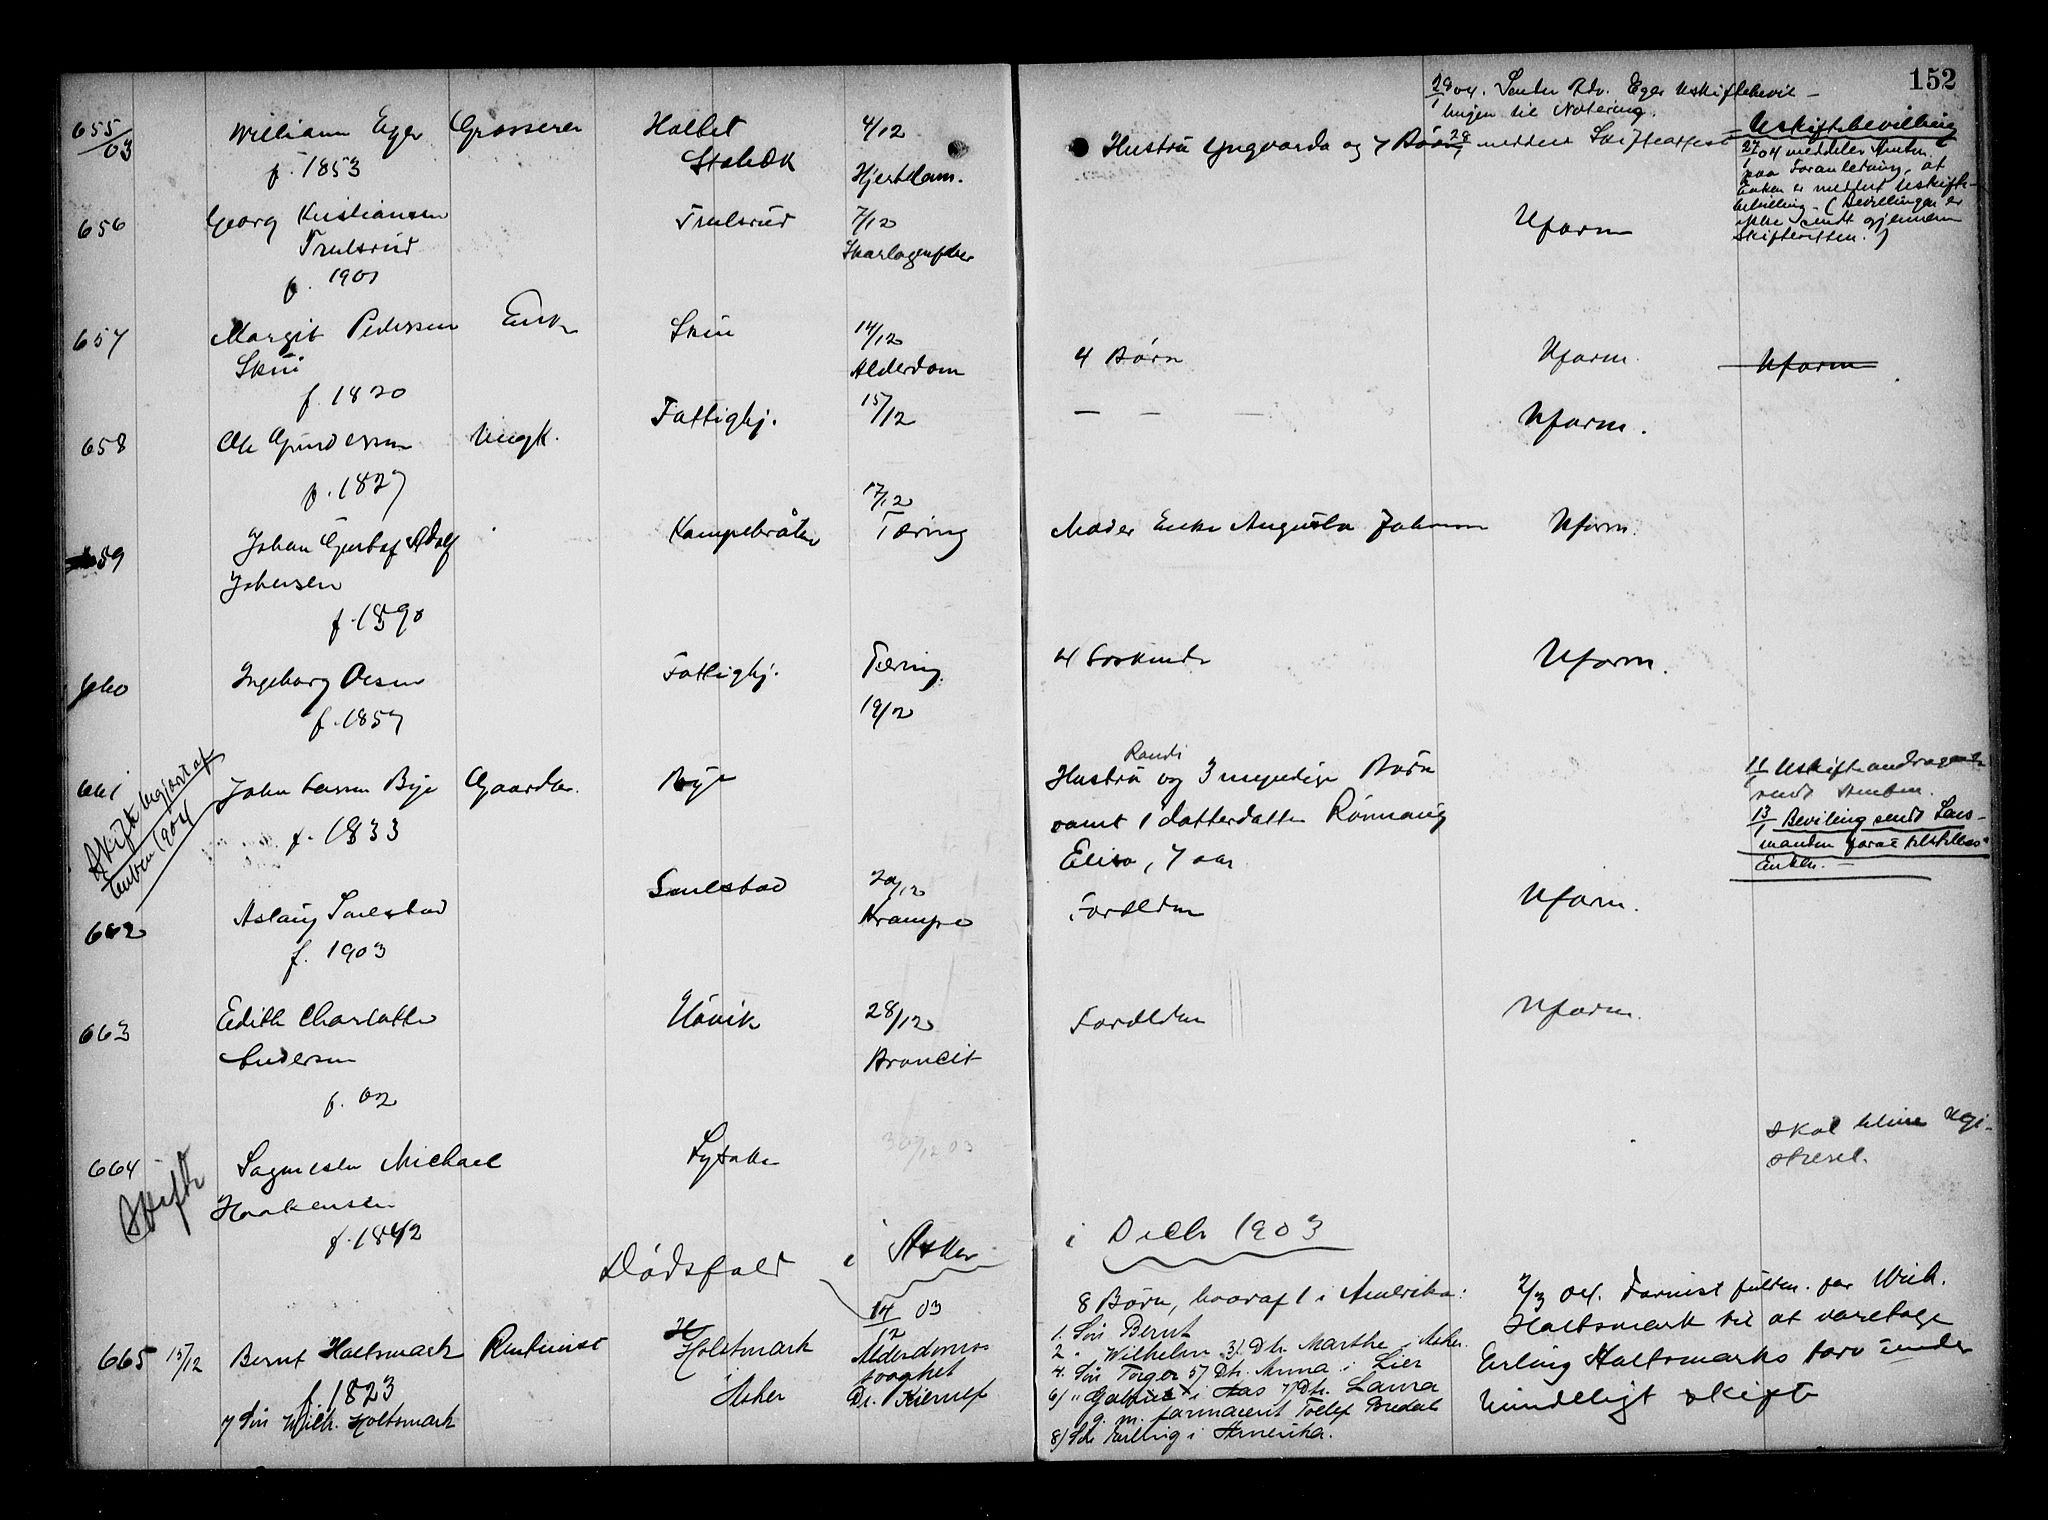 152
655/03
William Eger
f. 1853
Grosserer
Holtet
Stabæk
4/12
Hjertelam.
Hustru Yngvarda og 7 Børn 28/1 meddelt Skifteattest
28/1 04. Sender Adv. Eger Uskiftebevil-
lingen til Notering.
Uskiftebevilling
27/1 04 meddeler Amtm.
paa Foranledning, at
Enken er meddelt Uskifte-
bevilling. (Bevillingen er
ikke sendt gjennem
Skifteretten.)
656
Georg Kristiansen
Trulsrud
f. 1901
Trulsrud
7/12
Skarlagensfeber
Uform
657
Margit Pedersen
Skui
f. 1820
Enke
Skui
14/12
Alderdom
4 Børn
Uform.
Uform
658
Ole Gundersen
f. 1827
Ungk.
Fattighj.
15/12
— — —
Uform.
659
Johan Gustaf Adolf
Johansen
f. 1890
Kampebråten
17/12
Tæring
Moder Enke Augusta Johansen
Uform.
660
Ingeborg Olsen
f. 1857
Fattighj.
Tæring
19/12
4 Søskende
Uform.
661
Skifte begjært af
Enken 1904
John Larsen Bye
f. 1833
Gaardbr.
Bye
Randi
Hustru og 3 myndige Børn
samt 1 datterdatter Rønnaug
Elise, 7 aar
11/1 Uskifteandragende
sendt Amtm.
13/1 Bevilling sendt Lens-
manden for at tilstilles
Enken.
662
Aslaug Smestad
f. 1903
Smestad
20/12
Krampe
Forældre
Uform.
663
Edith Charlotte
Andersen
f. 02
Høvik
28/12
Broncit
Forældre
Uform.
664
Skifte
Sagmester Michael
Haakensen
f. 1842
Lysaker
30/12 03
skal blive Regi-
streret.
Dødsfald i Asker
i Decbr 1903
665
15/12
Bernt Holtsmark
f. 1823
7 Søn Wilh. Holtsmark
Rentenist
Holstmark
i
Asker
14/12 03
Alderdoms-
svaghet
Dr.
8 Børn, hvoraf 1 i Amerika:
1. Søn Bernt
2. " Wilhelm 3) Dtr. Marthe i Asker.
4. Søn Torger 5) Dtr. Anna i Lier
6) " Gabriel i Aas 7) Dtr. Laura
g. m. farmaceut Tollef Bredal
8) Søn Erling i Amerika.
2/3 04. Forevist fuldm. for Wilh.
Holtsmark til at varetage
Erling Holtsmarks tarv under
mindeligt skifte